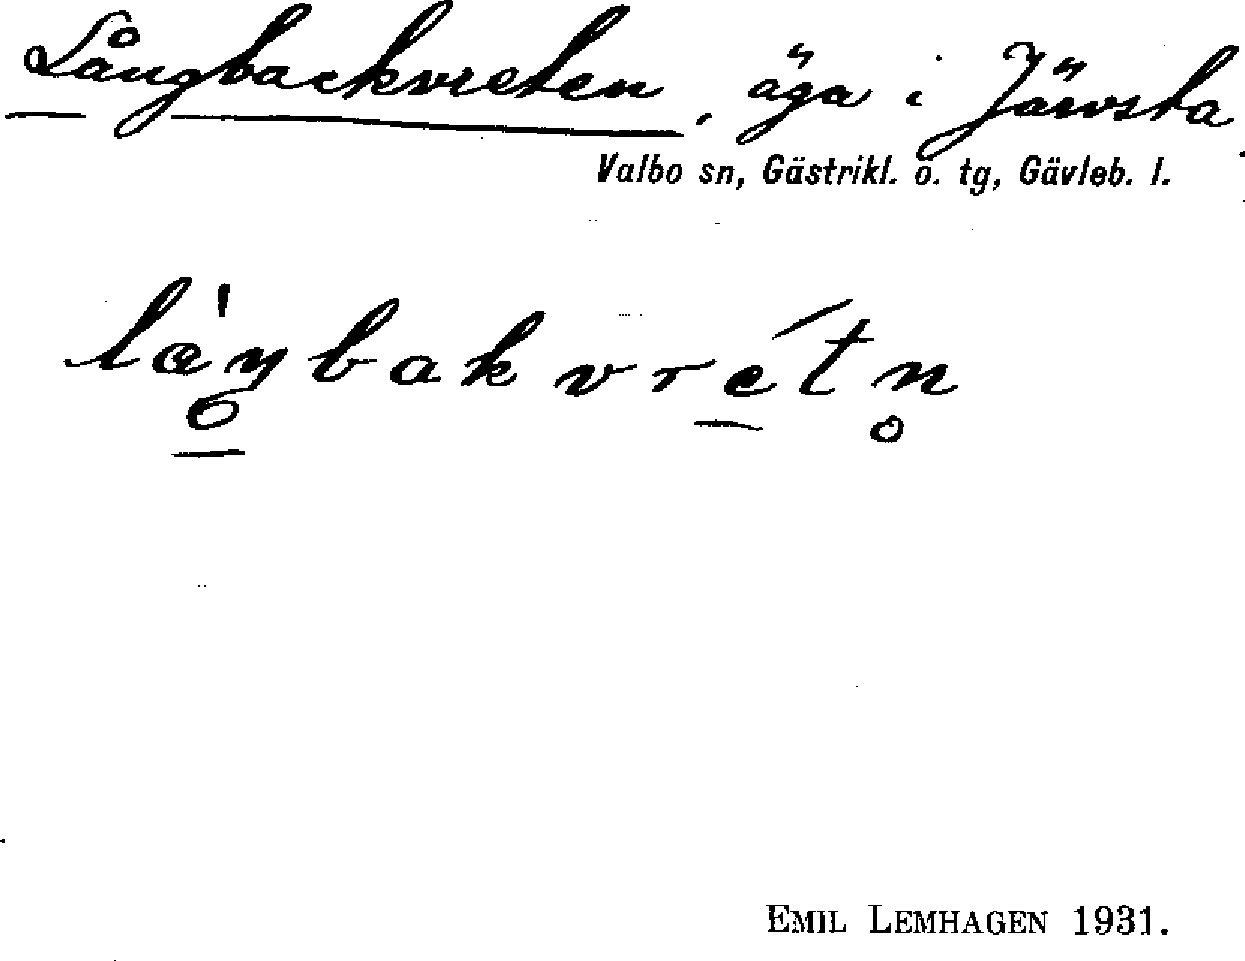 Långbackvreten, äga i Järvsta
Valbo sn, Gästrikl. ö. tg, Gävleb. l.
låŋbak vrétn̥
EMIL LEMHAGEN 1931.